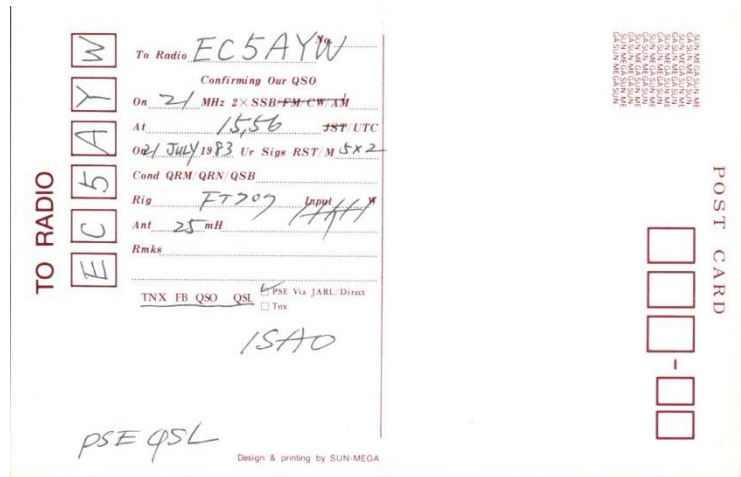 TO RADIO EC5AYW
To Radio EC5AYW No.
Confirming Our QSO
On 21 MHz 2×SSB/FM/CW/AM
At 15,56 JST/UTC
On 21 JULY 1983 Ur Sigs RST/M 5×2
Cond QRM/QRN/QSB
Rig FT707 Input W
Ant 25 mH
Rmks
TNX FB QSO QSL PSE Via JARL/Direct
Tnx
ISAO
PSE QSL
Design & printing by SUN-MEGA
SUN-MEGASUN-MEGASUN-ME
GASUN-MEGASUN-MEGASUN
POST CARD